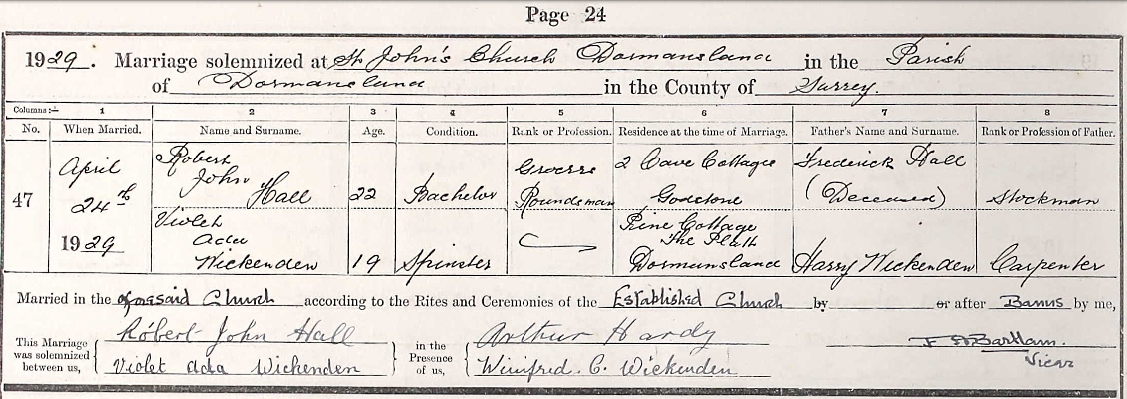 Page 24
1929. Marriage solemnized at St John's Church Dormansland in the Parish
of Dormansland in the County of Surrey.
Columns:— 1 2 3 4 5 6 7 8
No. When Married. Name and Surname. Age. Condition. Rank or Profession. Residence at the time of Marriage. Father's Name and Surname. Rank or Profession of Father.
47
April
24th
1929
Robert
John
Hall
22
Bachelor
Grocers
Roundsman
2 Cave Cottage
Godstone
Frederick Hall
(Deceased)
Stockman
Violet
Ada
Wickenden
19
Spinster
Pine Cottage
The Platt
Dormansland
Harry Wickenden
Carpenter
Married in the aforesaid Church according to the Rites and Ceremonies of the Established Church by or after Banns by me,
This Marriage was solemnized between us,
Robert John Hall
Violet Ada Wickenden
in the Presence of us,
Arthur Hardy
Winifred. C. Wickenden
Bartlam.
Vicar